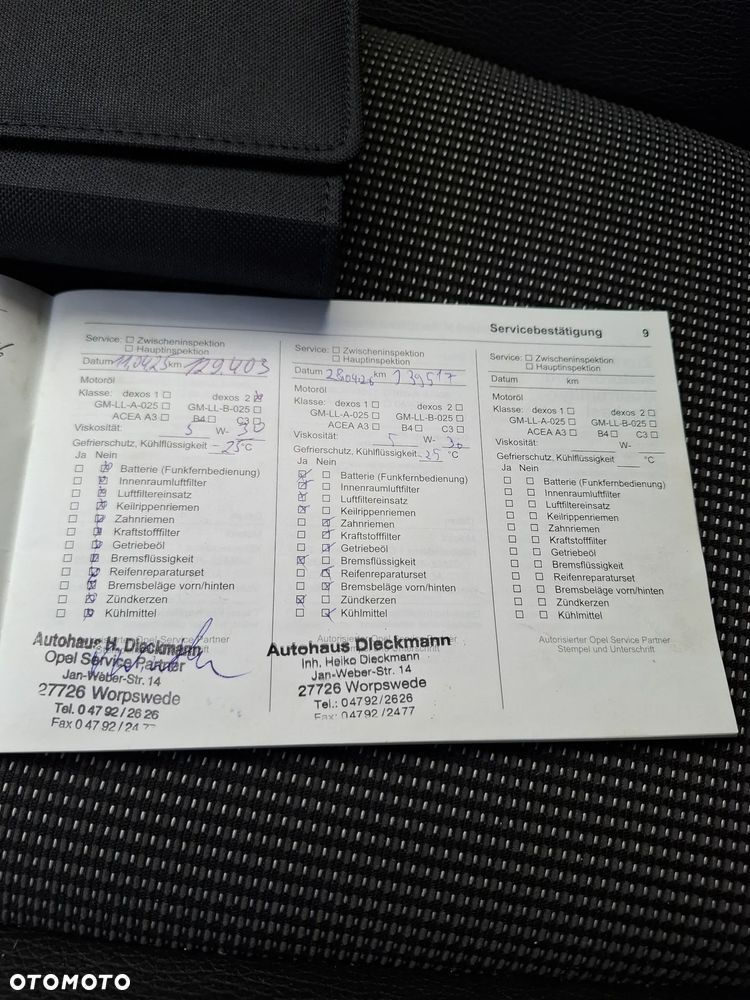 Servicebestätigung 9
Service: ☐ Zwischeninspektion
☐ Hauptinspektion
Datum 11.04.25 km 129.403
Motoröl
Klasse: dexos 1 ☐ dexos 2 ☒
GM-LL-A-025 ☐ GM-LL-B-025 ☐
ACEA A3 ☐ B4 ☐ C3 ☐
Viskosität: 5 W- 30
Gefrierschutz, Kühlflüssigkeit -25 °C
Ja Nein
☐ ☒ Batterie (Funkfernbedienung)
☐ ☒ Innenraumluftfilter
☐ ☒ Luftfiltereinsatz
☐ ☒ Keilrippenriemen
☐ ☒ Zahnriemen
☐ ☒ Kraftstofffilter
☐ ☒ Getriebeöl
☐ ☒ Bremsflüssigkeit
☐ ☒ Reifenreparaturset
☐ ☒ Bremsbeläge vorn/hinten
☐ ☒ Zündkerzen
☐ ☒ Kühlmittel
Autorisierter Opel Service Partner
Autohaus H. Dieckmann
Opel Service Partner
Jan-Weber-Str. 14
27726 Worpswede
Tel. 0 47 92 / 26 26
Fax 0 47 92 / 24 77
Service: ☐ Zwischeninspektion
☐ Hauptinspektion
Datum 28.04.26 km 139517
Motoröl
Klasse: dexos 1 ☐ dexos 2 ☐
GM-LL-A-025 ☐ GM-LL-B-025 ☐
ACEA A3 ☐ B4 ☐ C3 ☐
Viskosität: 5 W- 30
Gefrierschutz, Kühlflüssigkeit -25 °C
Ja Nein
☒ ☐ Batterie (Funkfernbedienung)
☒ ☐ Innenraumluftfilter
☒ ☐ Luftfiltereinsatz
☒ ☐ Keilrippenriemen
☐ ☒ Zahnriemen
☐ ☒ Kraftstofffilter
☐ ☒ Getriebeöl
☒ ☐ Bremsflüssigkeit
☐ ☒ Reifenreparaturset
☐ ☒ Bremsbeläge vorn/hinten
☒ ☐ Zündkerzen
☐ ☒ Kühlmittel
Autorisierter Opel Service Partner
Autohaus Dieckmann
Inh. Heiko Dieckmann
Jan-Weber-Str. 14
27726 Worpswede
Tel.: 04792/2626
Fax: 04792/2477
Service: ☐ Zwischeninspektion
☐ Hauptinspektion
Datum km
Motoröl
Klasse: dexos 1 ☐ dexos 2 ☐
GM-LL-A-025 ☐ GM-LL-B-025 ☐
ACEA A3 ☐ B4 ☐ C3 ☐
Viskosität: W-
Gefrierschutz, Kühlflüssigkeit °C
Ja Nein
☐ ☐ Batterie (Funkfernbedienung)
☐ ☐ Innenraumluftfilter
☐ ☐ Luftfiltereinsatz
☐ ☐ Keilrippenriemen
☐ ☐ Zahnriemen
☐ ☐ Kraftstofffilter
☐ ☐ Getriebeöl
☐ ☐ Bremsflüssigkeit
☐ ☐ Reifenreparaturset
☐ ☐ Bremsbeläge vorn/hinten
☐ ☐ Zündkerzen
☐ ☐ Kühlmittel
Autorisierter Opel Service Partner
Stempel und Unterschrift
OTOMOTO